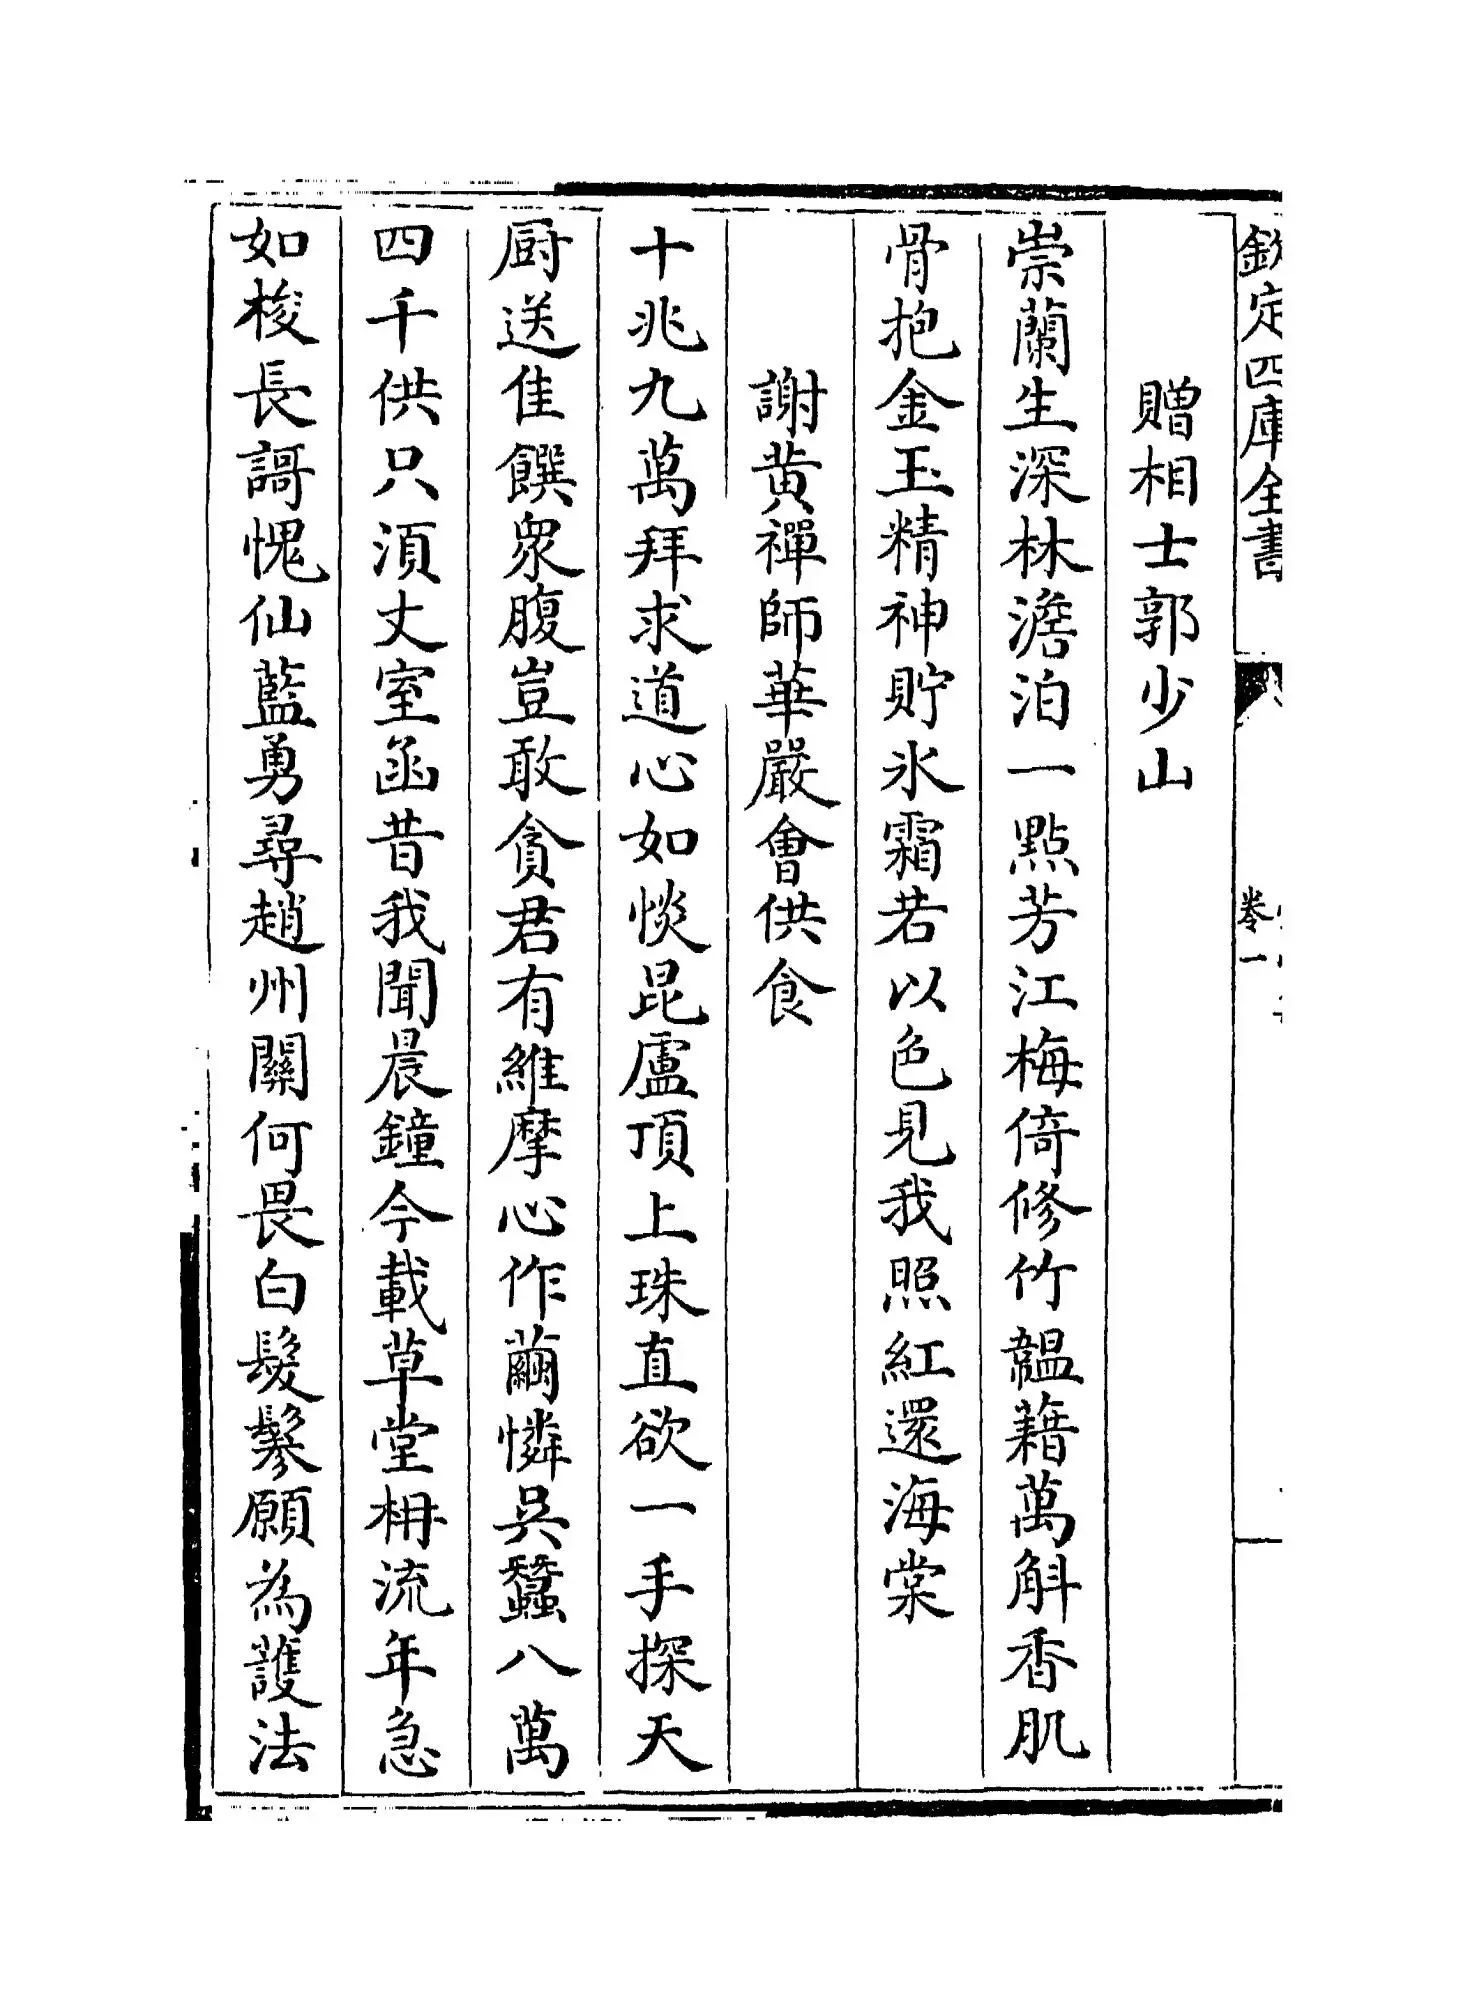 欽定四庫全書
卷一
贈相士郭少山
崇蘭生深林澹泊一點芳江梅倚修竹韞藉萬斛香肌
骨抱金玉精神貯氷霜若以色見我照紅還海棠
謝黄禪師華嚴㑹供食
十兆九萬拜求道心如惔昆盧頂上珠直欲一手探天
厨送佳饌衆腹豈敢貪君有維摩心作繭憐吳蠶八萬
四千供只湏丈室函昔我聞晨鐘今載草堂枏流年急
如梭長謌愧仙藍勇尋趙州關何畏白髮鬖願為䕶法